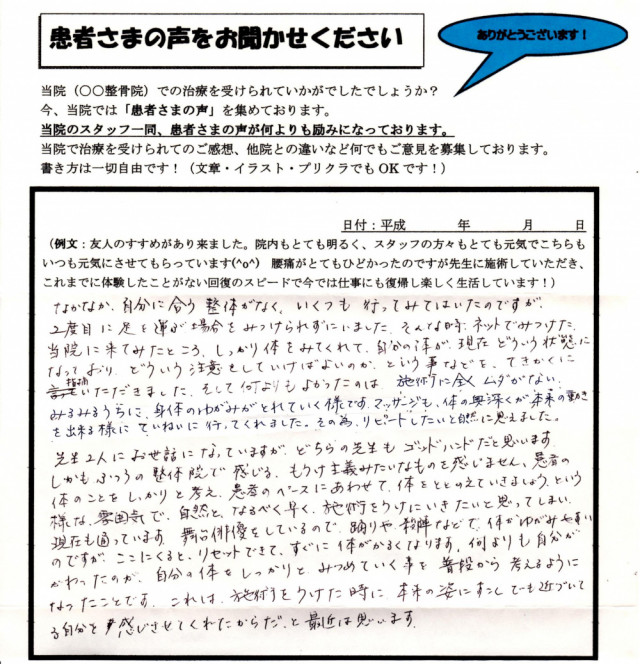 患者さまの声をお聞かせください
ありがとうございます!
当院(〇〇整骨院)での治療を受けられていかがでしたでしょうか?
今、当院では「患者さまの声」を集めております。
当院のスタッフ一同、患者さまの声が何よりも励みになっております。
当院で治療を受けられてのご感想、他院との違いなど何でもご意見を募集しております。
書き方は一切自由です!(文章・イラスト・プリクラでもOKです!)
日付:平成 年 月 日
(例文:友人のすすめがあり来ました。院内もとても明るく、スタッフの方々もとても元気でこちらも
いつも元気にさせてもらっています(^o^) 腰痛がとてもひどかったのですが先生に施術していただき、
これまでに体験したことがない回復のスピードで今では仕事にも復帰し楽しく生活しています!)
なかなか、自分に合う整体がなく、いくつも行ってみてはいたのですが、
2度目に足を運ぶ場合をみつけられずにいました。そんな時、ネットでみつけた、
当院に来てみたところ、しっかり体をみてくれて、自分の体が、現在どういう状態に
なっており、どういう注意をしていけばよいのか、という事などを、てきかくに
指摘いただきました。そして何よりもよかったのは、施術に全くムダがない。
みるみるうちに、身体のゆがみがとれていく様です。マッサージも、体の奥深くが本来の動き
を出来る様に、ていねいに行ってくれました。その為、リピートしたいと自然に思えました。
先生2人にお世話になっていますが、どちらの先生もゴッドハンドだと思います。
しかも、ふつうの整体院で感じる、もうけ主義みたいなものを感じません、患者の
体のことをしっかりと考え、患者のペースにあわせて、体をととのえていきましょう、という
様な、雰囲気で、自然と、なるべく早く、施術をうけにいきたいと思ってしまい、
現在も通っています。舞台俳優をしているので、踊りや、殺陣などで、体がゆがみやすい
のですが、ここにくると、リセットできて、すぐに体がかるくなります。何よりも自分が
かわったのが、自分の体をしっかりと、みつめていく事を、普段から考えるように
なったことです。これは、施術をうけた時に、本来の姿にすこしでも近づいて
る自分を感じさせてくれたからだ、と最近は思います。